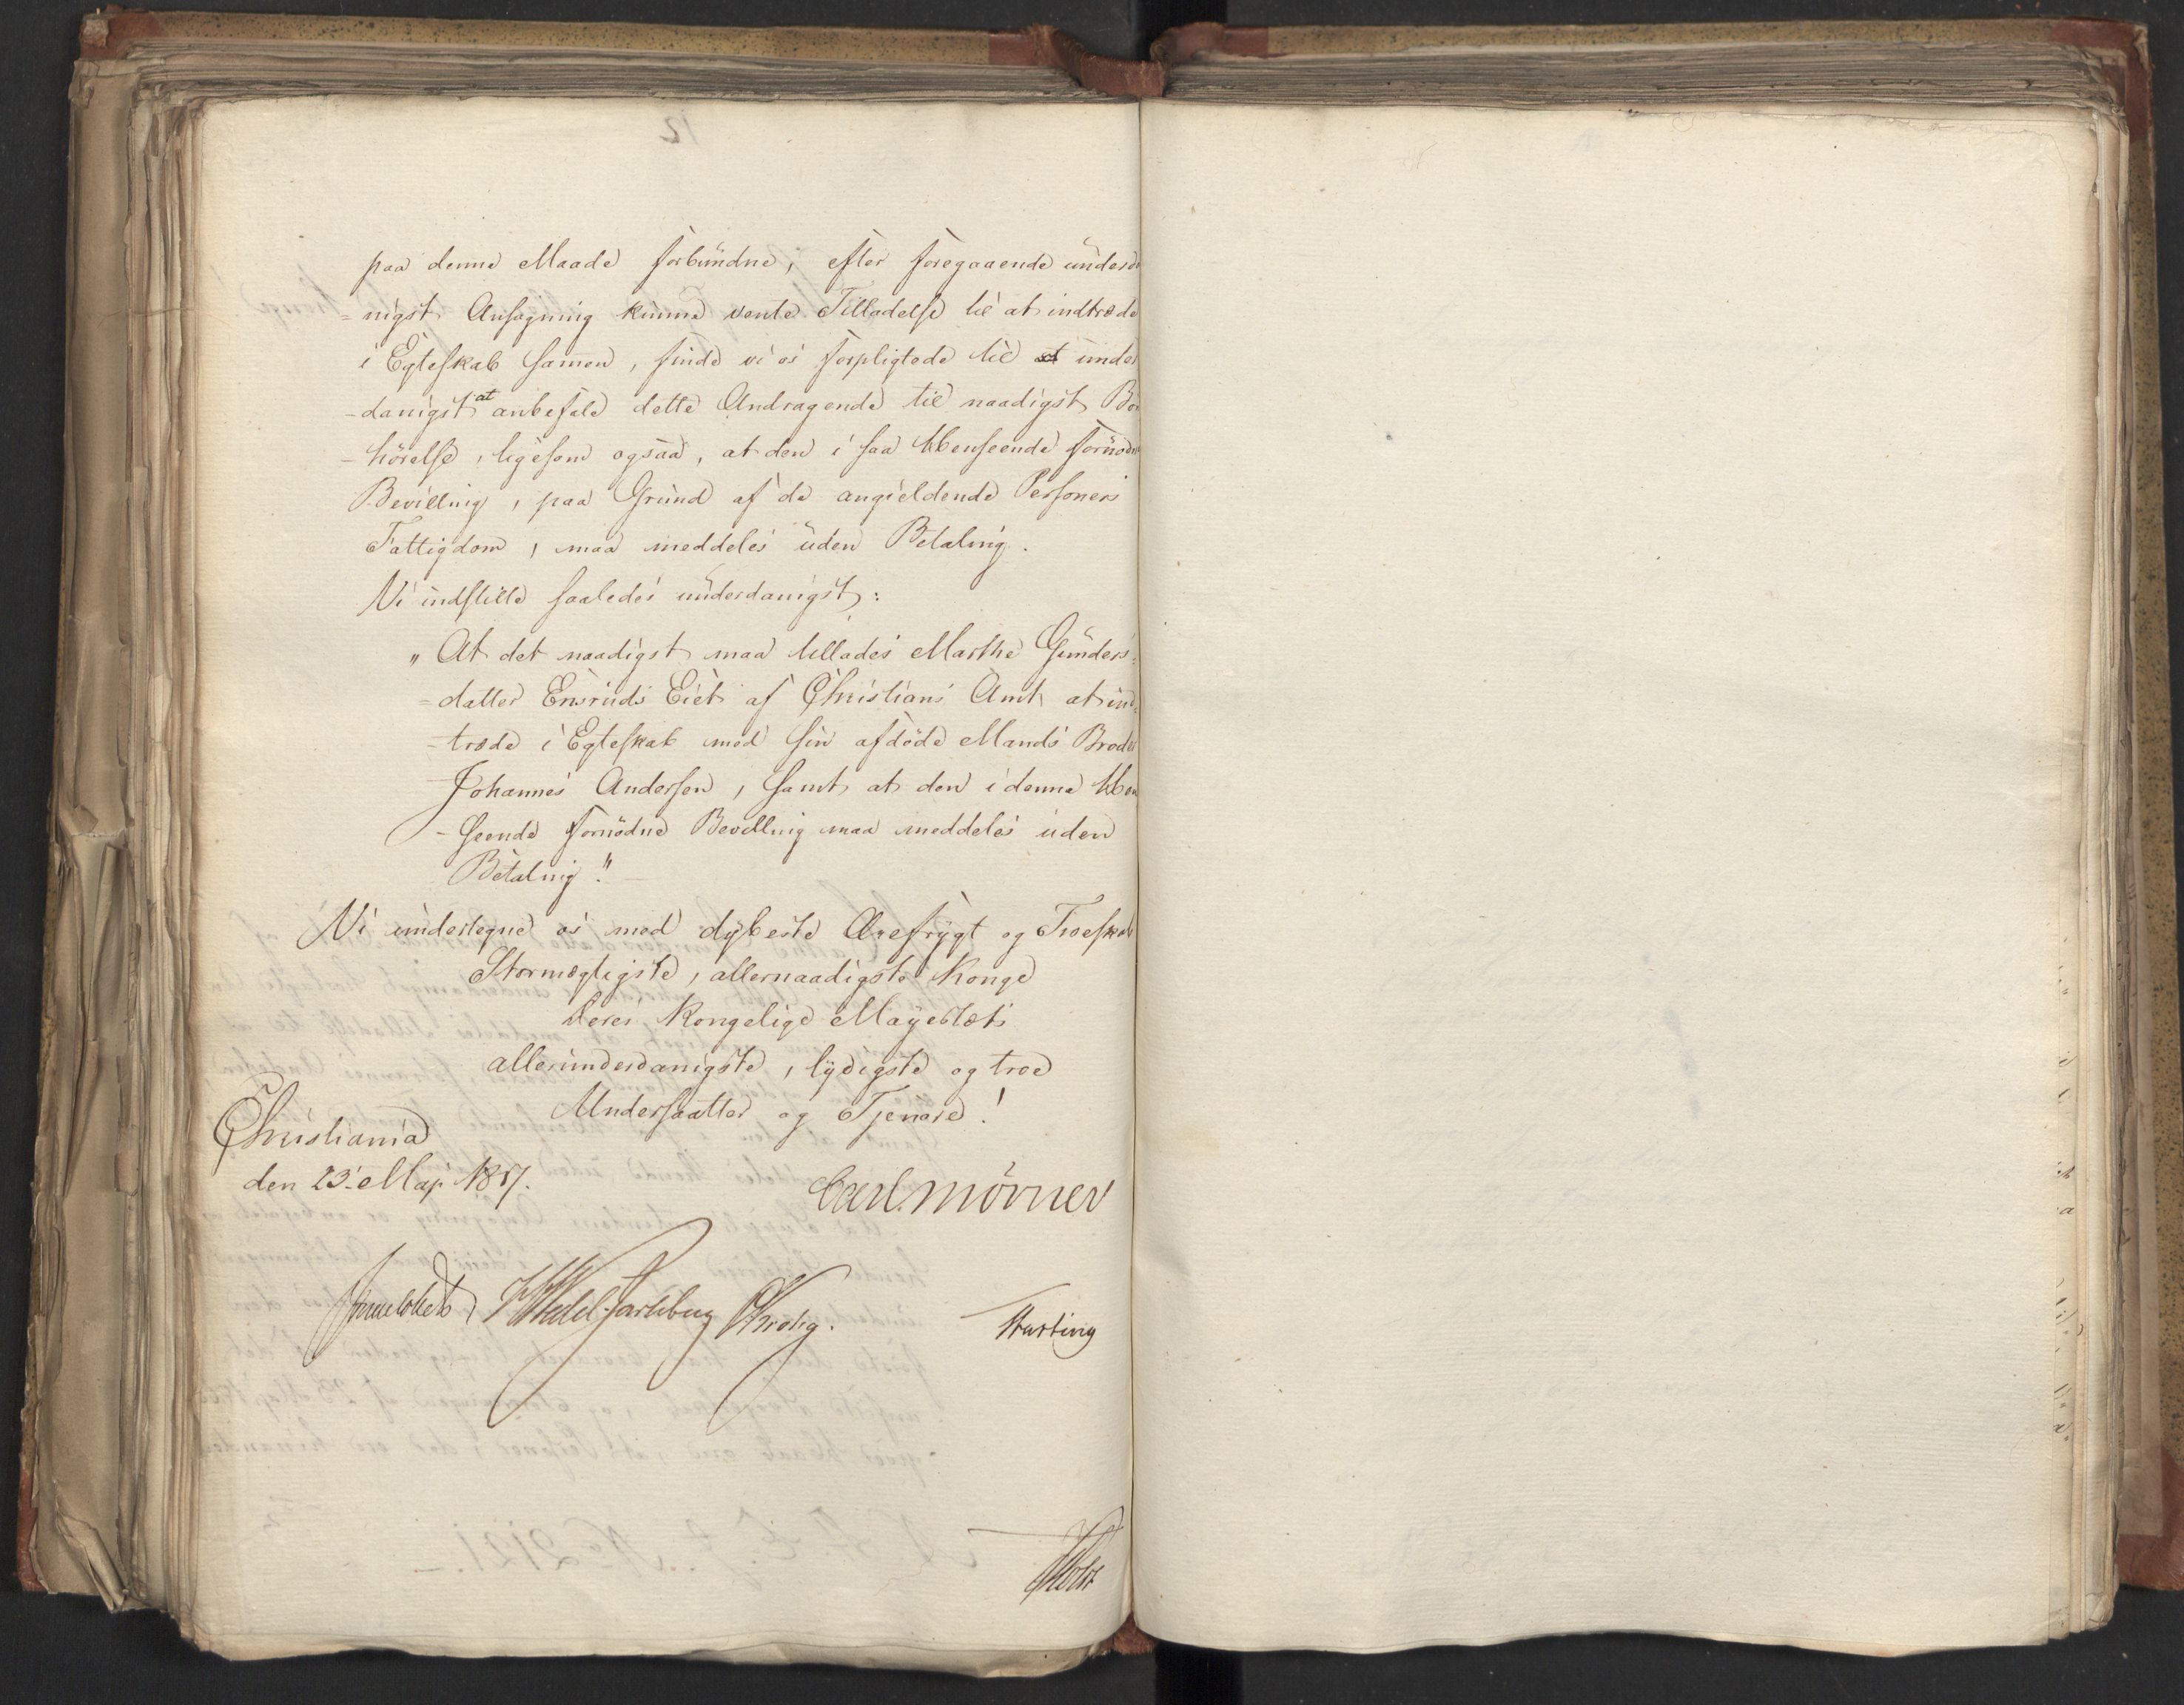 paa denne Maade forbundne, efter foregaaende underda
=nigst Ansøgning kunne vente Tilladelse til at indtræde
i Egteskab sammen, finde vi os forpligtede til at under
-danigst at anbefale dette Andragende til naadigst Bøn
-hörelse, ligesom ogsaa, at den i saa Henseende fornødne
Bevilling, paa Grund af de angieldende Personers
Fattigdom, maa meddeles uden Betaling.
Vi indstille saaledes underdanigst:
„At det naadigst maa tillades Marthe Gunders=
=datter Ensruds Eiet af Christians Amt at ind=
-træde i Egteskab med sin afdöde Mands Broder
Johannes Andersen, samt at den i denne Hen
-seende fornödne Bevilling maa meddeles uden
Betaling."
Vi undertegne os med dybeste Ærefrygt og Troeskab
Stormægtigste, allernaadigste Konge
Deres Kongelige Mayestæts
allerunderdanigste, lydigste og troe
Undersaatter og Tjenere!
Christiania
den 23 Maj 1817.
Carl. Mörner
Sommerhielm HWedel-Jarlsberg CKrohg.
Hartvig
Holst